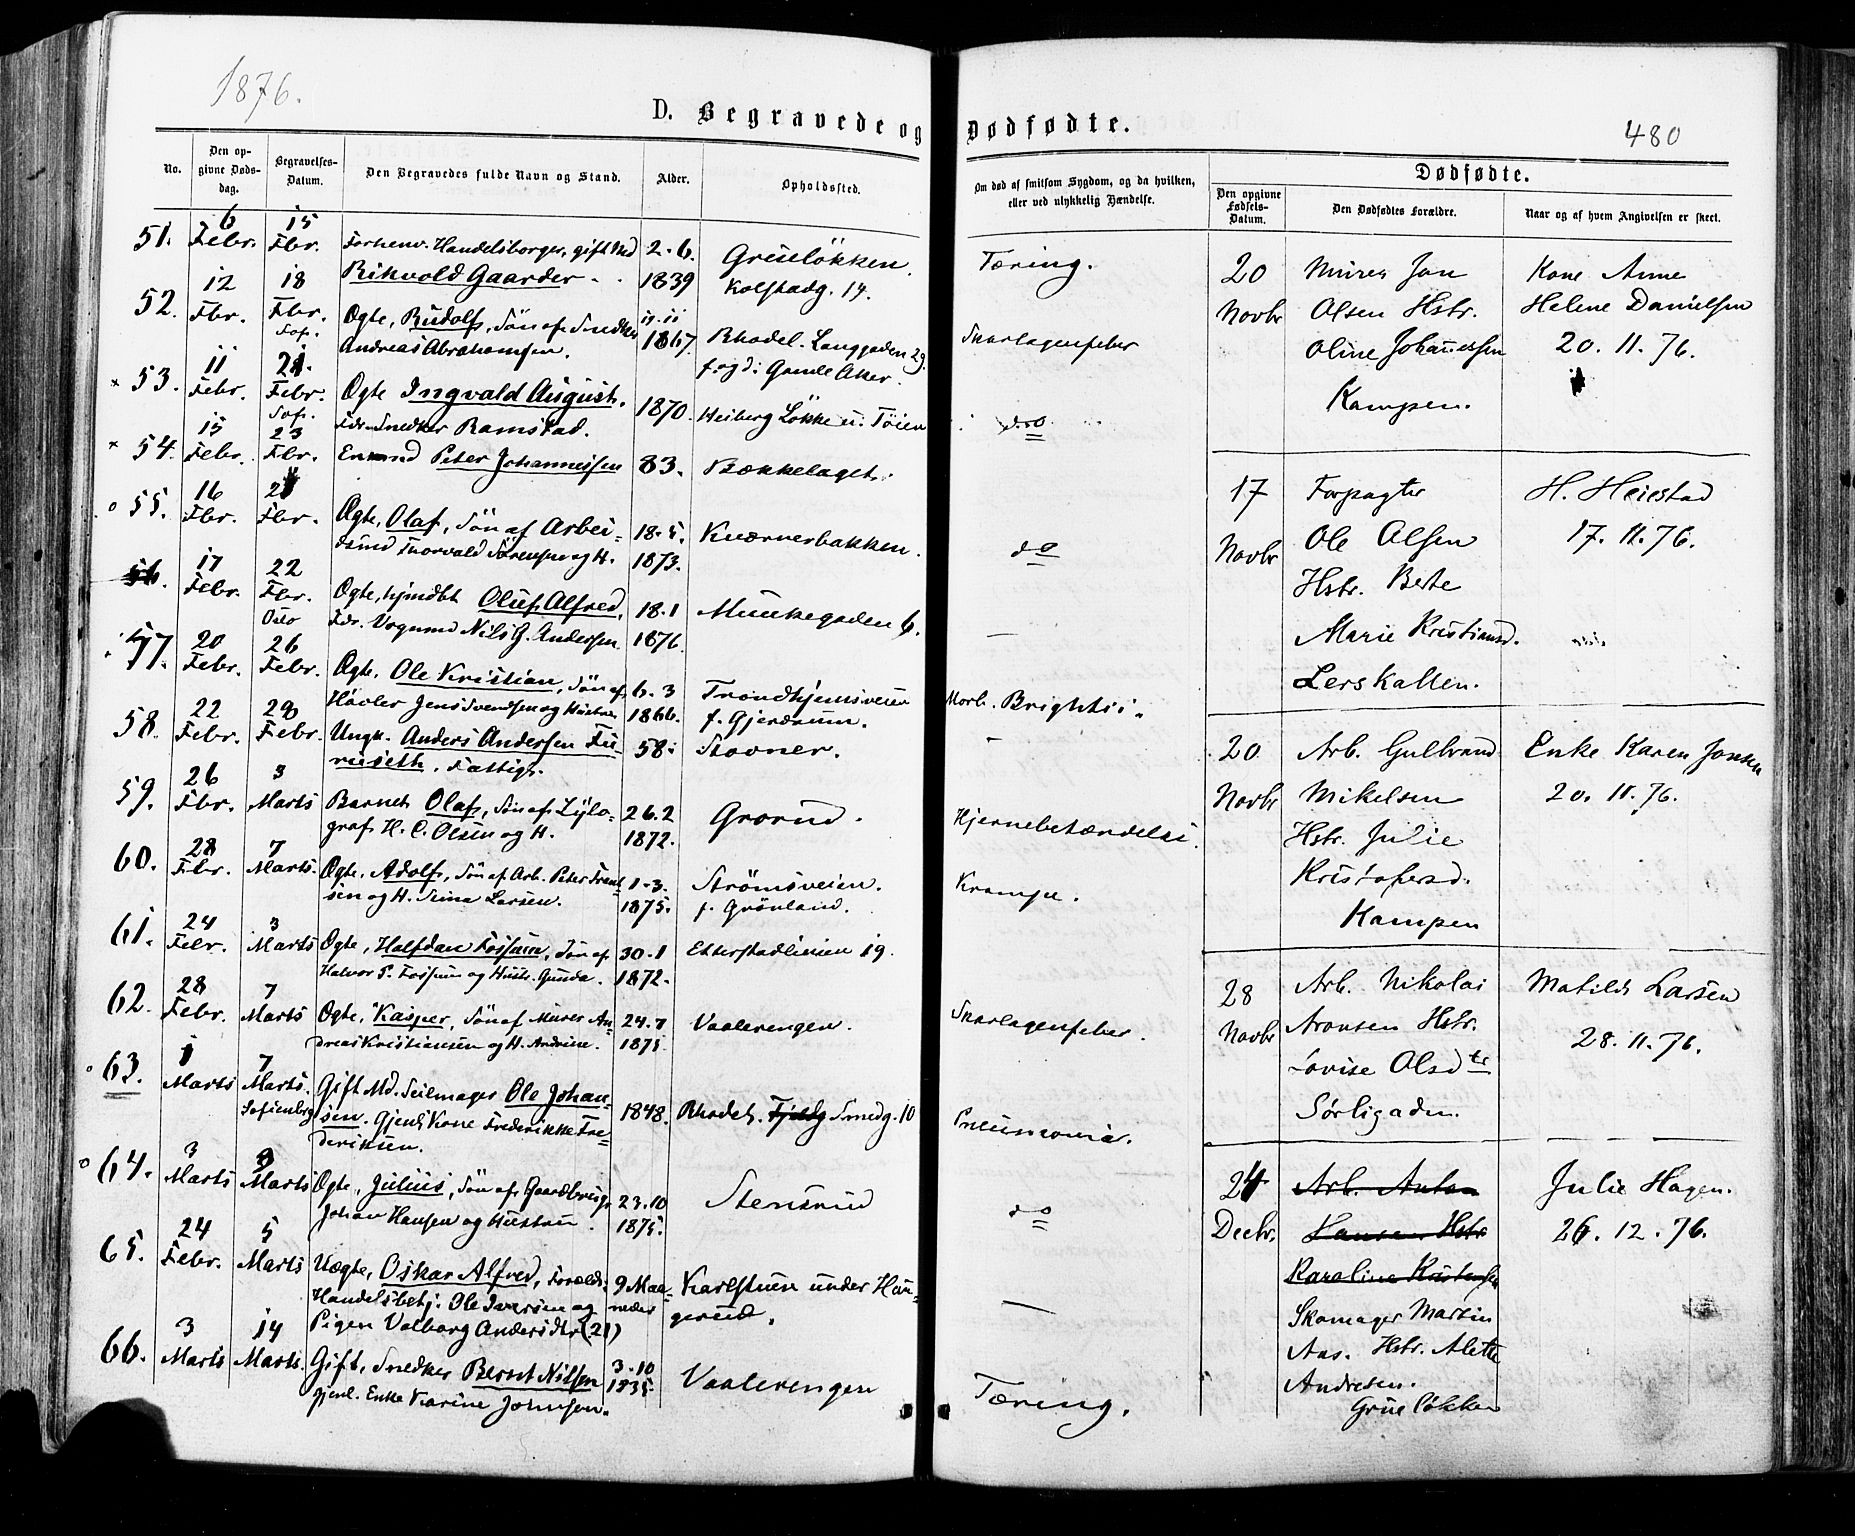 1876.
480
D. Begravede og Dødfødte.
No.
Den opgivne Dødsdag.
Begravelses-Datum.
Den Begravedes fulde Navn og Stand.
Alder.
Opholdssted.
Om død af smitsom Sygdom, og da hvilken, eller ved ulykkelig Hændelse.
Dødfødte.
Den opgivne Fødsels-Datum.
Den Dødfødtes Forældre.
Naar og af hvem Angivelsen er skeet.
51. 6 Febr. 15 Fbr. Forhenv. Handelsborger, gift Md
Rikvold Gaarder. 2-6. 1839 Grüneløkken. Kolstadg. 14. Tæring.
52. 12 Fbr. 18 Fbr. Sof. Ægte, Rudolf, Søn af Snedker
Andreas Abrahamsen. 11.11 1867. Rhodel. Langgaden 29. f. og d: Gamle Aker. Skarlagensfeber
× 53. 11 Febr. 21. Febr. Sof. Ægte Ingvald August.
Fdr. Snedker Ramstad. 1870. Heiberg Løkke u. Tøien do
× 54. 15 Febr. 23 Fbr. Enkemd Peter Johannessen 83. Bækkelaget.
o 55. 16 Fbr. 21 Fbr. Ægte, Olaf, Søn af Arbei-
dsmd Thorvald Sørensen og H. 18-5. 1873. Kværnerbakken. do
56. 17 Febr. 22 Fbr. Oslo Ægte, hjmdbt Oluf Alfred,
Fdr. Vognmd Nils G. Andersen 18.1 1876. Munkegaden 6. —
57. 20 Febr. 26 Febr. Ægte, Ole Kristian, Søn af
Høvler Jens Svendsen og Hustru 6.3 1866. Trondhjemsveien f. Gjerdrum. Morb. Brightii.
58. 22 Febr. 28 Febr. Ungk. Anders Andersen Fu-
ruseth. Fattigl. 58. Stovner. -
59. 26 Fbr. 3 Marts Barnet Olaf, Søn af Xylo-
graf H. C. Olsen og H. 26.2 1872. Grorud. Hjernebetændelse.
60. 28 Fbr. 7 Marts. Ægte, Adolf, Søn af Arb. Peter Frant-
sen og H. Stina Larsen. 1-3. 1875. Strömsveien. f. Grönland. Krampe.
61. 24 Febr. 3 Marts Ægte, Halfdan Fossum, Søn af
Halvor P. Fossum og Hustr. Gunda. 30-1 1872. Etterstadlinien 19.
62. 28 Febr. 7 Marts Ægte, Kasper, Søn af Murer An-
dreas Kristiansen og H. Andrine. 24.7 1875. Vaalerengen. Skarlagensfeber.
o 63. 1 Marts 7 Marts. Sofienberg Gift Md. Seilmager Ole Johan-
sen. Gjenl. Kone Frederikke Fre-
deriksen. 1848. Rhodel. Smedg. 10 Pneumonia.
o 64. 3 Marts 8 Marts Ægte, Julius, Søn af Gaardbrug.
Johan Hansen og Hustru. 23.10 1875. Stensrud do
65. 24 Febr. 5 Marts Uægte, Oskar Alfred, Foræld:
Handelsbetj. Ole Iversen og
Pigen Valborg Andersdtr (21) 9 Maa-neder Karlstuen under Hau-gerud. —
66. 3 Marts 14 Marts. Gift, Snedker Bernt Nilsen
gjenl. Enke Karine Johnsen. 3-10 1835. Vaalerengen Tæring.
20 Novbr Murer Jon
Olsen Hstr.
Oline Johannessen
Kampen.
Kone Anne
Helene Danielsen
20. 11. 76.
17 Novbr Forpagter
Ole Olsen
Hstr. Berte
Marie Kristiansd.
Lerskallen.
H. Heiestad
17. 11. 76.
20 Novbr Arb. Gulbrand
Mikelsen
Hstr. Julie
Kristofersd.
Kampen
Enke Karen Jonsen
20. 11. 76.
28 Novbr Arb. Nikolai
Aronsen Hstr.
Lovise Olsdtr
Sørligaden.
Matilde Larsen
28. 11. 76.
24 Decbr. Arb. Anton
Hansen Hstr
Karoline Kristensen
Skomager Martin
Aas. Hstr. Alette
Andresen.
Grüneløkken
Julie Hagen.
26. 12. 76.